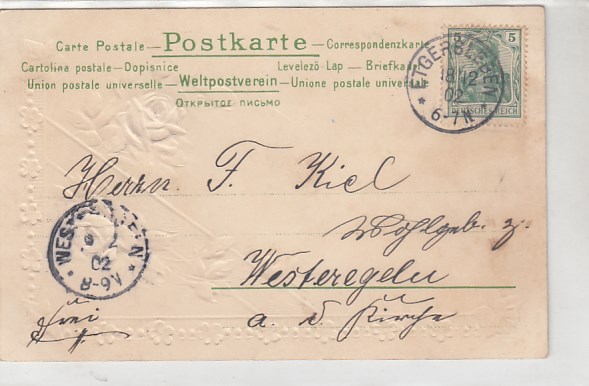 Carte Postale — Postkarte — Correspondenzkarte
Cartolina postale — Dopisnice Levelező-Lap — Briefkaart
Union postale universelle — Weltpostverein — Unione postale universale
Открытое письмо
5 5
DEUTSCHES REICH
ETGERSLEBEN
18 12
02
6-7N
Herrn F. Kiel
Wohlgeb. z.
Westeregeln
a. d. Kirche
frei
WESTEREGELN
02
8-9V